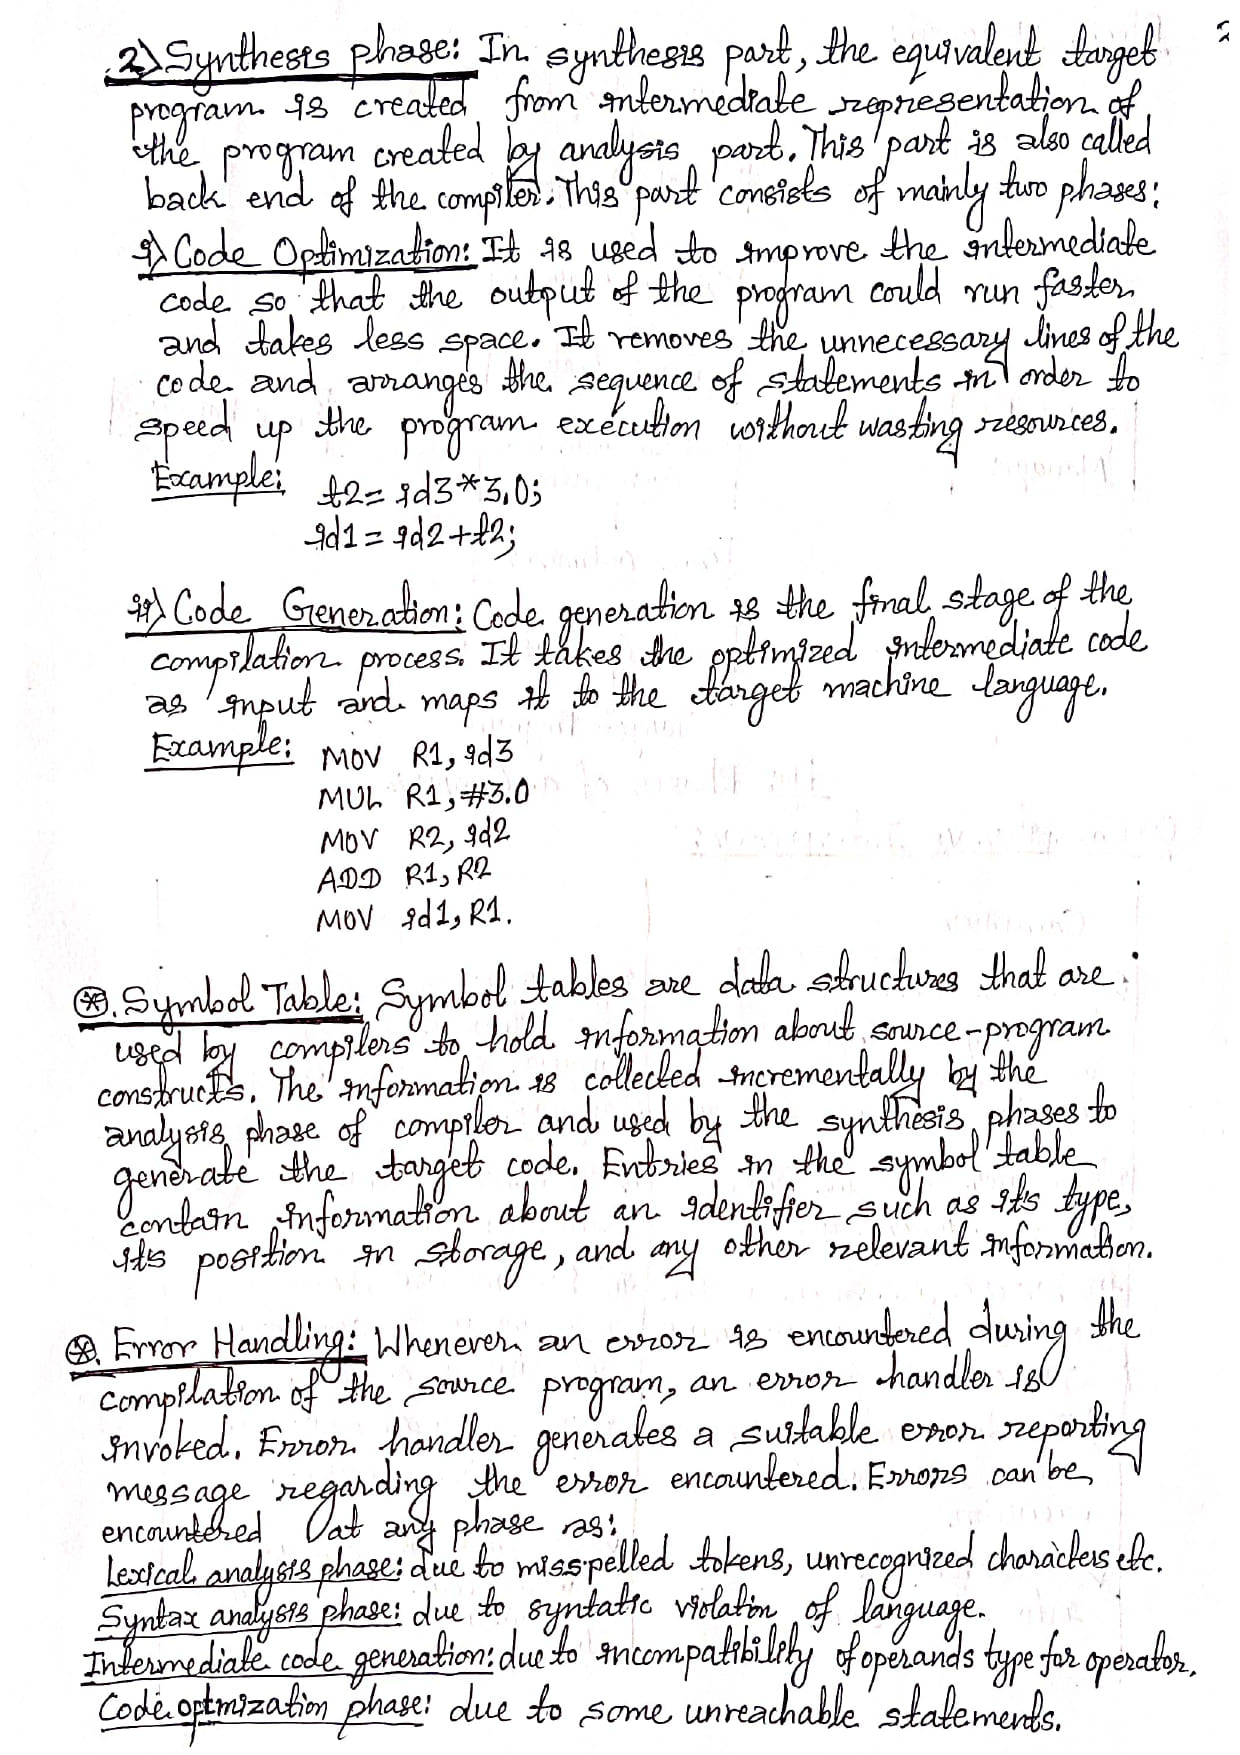 2
2) Synthesis phase: In synthesis part, the equivalent target
program is created from intermediate representation of
the program created by analysis part. This part is also called
back end of the compiler. This part consists of mainly two phases:
i) Code Optimization: It is used to improve the intermediate
code so that the output of the program could run faster
and takes less space. It removes the unnecessary lines of the
code and arranges the sequence of statements in order to
speed up the program execution without wasting resources.
Example: t2= id3*3.0;
id1 = id2+t2;
ii) Code Generation: Code generation is the final stage of the
compilation process. It takes the optimized intermediate code
as input and maps it to the target machine language.
Example: MOV R1, id3
MUL R1, #3.0
MOV R2, id2
ADD R1, R2
MOV id1, R1.
⊛. Symbol Table: Symbol tables are data structures that are
used by compilers to hold information about source-program
constructs. The information is collected incrementally by the
analysis phase of compiler and used by the synthesis phases to
generate the target code. Entries in the symbol table
contain information about an identifier such as its type,
its position in storage, and any other relevant information.
⊛. Error Handling: Whenever an error is encountered during the
compilation of the source program, an error handler is
invoked. Error handler generates a suitable error reporting
message regarding the error encountered. Errors can be
encountered at any phase as:
Lexical analysis phase: due to misspelled tokens, unrecognized characters etc.
Syntax analysis phase: due to syntatic violatin of language.
Intermediate code generation: due to incompatibility of operands type for operator.
Code optmization phase: due to some unreachable statements.